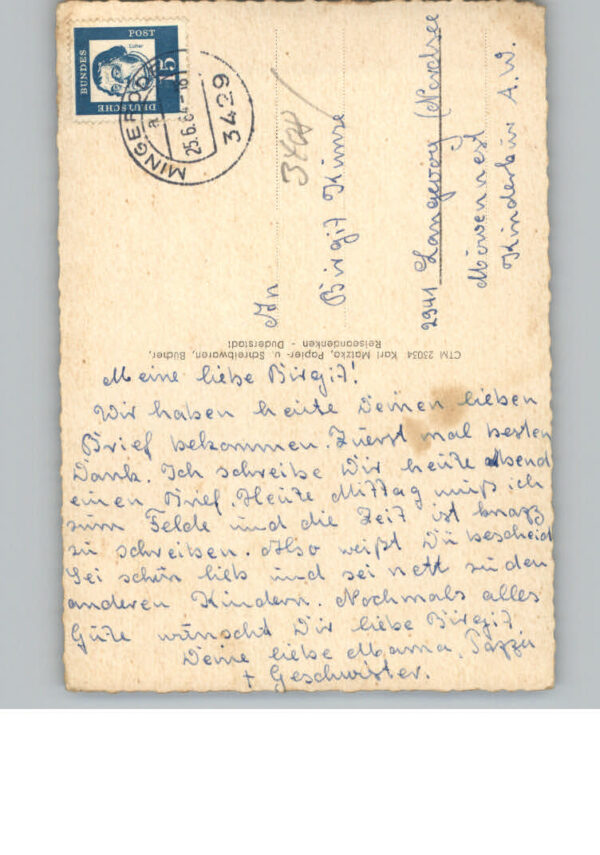 DEUTSCHE BUNDESPOST
Luther
15
MINGERODE
25.6.64-16
3429
3404
An
Birgit Kunze
2941 Langeoog (Nordsee
Möwennest
Kinderkur A.W.
CTM 23034 Karl Matzko, Papier- u. Schreibwaren, Bücher,
Reiseandenken - Duderstadt
Meine liebe Birgit!
Wir haben heute Deinen lieben
Brief bekommen. Zuerst mal besten
Dank. Ich schreibe Dir heute Abend
einen Brief. Heute Mittag muß ich
zum Felde und die Zeit ist knapp
zu schreiben. Also weißt Du bescheid
Sei schön lieb und sei nett zu den
anderen Kindern. Nochmals alles
Gute wünscht Dir liebe Birgit
Deine liebe Mama, Pappi
+ Geschwister.